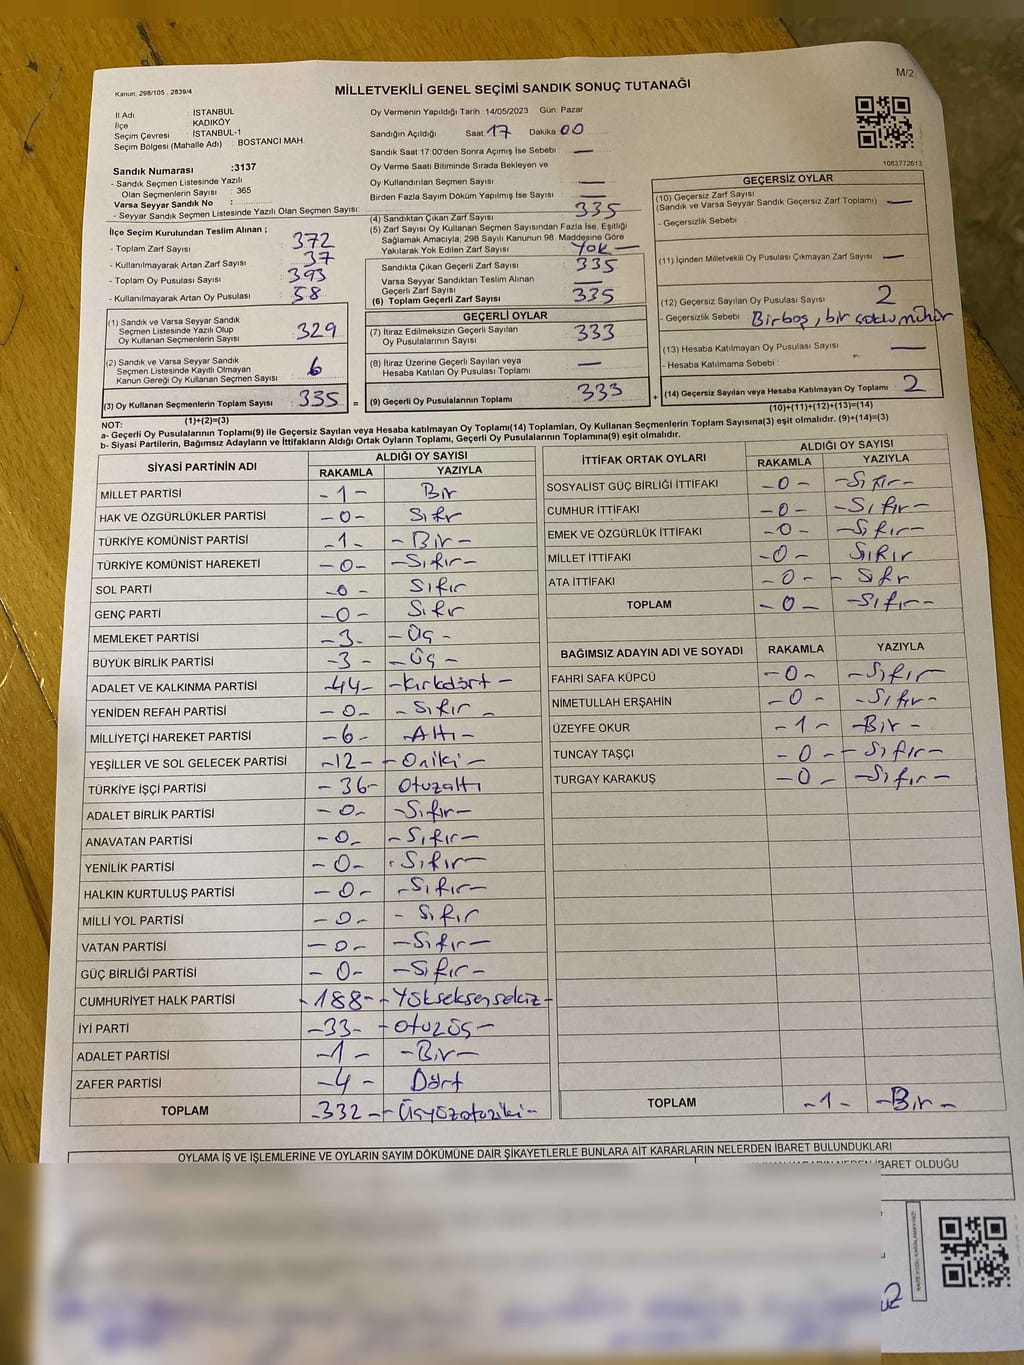 Kanun. 298/105 , 2839/4
M/2
MİLLETVEKİLİ GENEL SEÇİMİ SANDIK SONUÇ TUTANAĞI
İl Adı : İSTANBUL
İlçe : KADIKÖY
Seçim Çevresi : İSTANBUL-1
Seçim Bölgesi (Mahalle Adı) : BOSTANCI MAH.
Sandık Numarası :3137
- Sandık Seçmen Listesinde Yazılı
Olan Seçmenlerin Sayısı : 365
Varsa Seyyar Sandık No :
- Seyyar Sandık Seçmen Listesinde Yazılı Olan Seçmen Sayısı:
İlçe Seçim Kurulundan Teslim Alınan ;
- Toplam Zarf Sayısı : 372
- Kullanılmayarak Artan Zarf Sayısı : 37
- Toplam Oy Pusulası Sayısı : 393
- Kullanılmayarak Artan Oy Pusulası : 58
(1) Sandık ve Varsa Seyyar Sandık
Seçmen Listesinde Yazılı Olup
Oy Kullanan Seçmenlerin Sayısı : 329
(2) Sandık ve Varsa Seyyar Sandık
Seçmen Listesinde Kayıtlı Olmayan
Kanun Gereği Oy Kullanan Seçmen Sayısı : 6
(3) Oy Kullanan Seçmenlerin Toplam Sayısı : 335 =
(1)+(2)=(3)
Oy Vermenin Yapıldığı Tarih :14/05/2023 Gün: Pazar
Sandığın Açıldığı Saat 17 Dakika 00
Sandık Saat 17:00'den Sonra Açılmış İse Sebebi : —
Oy Verme Saati Bitiminde Sırada Bekleyen ve
Oy Kullandırılan Seçmen Sayısı : —
Birden Fazla Sayım Döküm Yapılmış İse Sayısı : —
(4) Sandıktan Çıkan Zarf Sayısı : 335
(5) Zarf Sayısı Oy Kullanan Seçmen Sayısından Fazla İse, Eşitliği
Sağlamak Amacıyla, 298 Sayılı Kanunun 98. Maddesine Göre
Yakılarak Yok Edilen Zarf Sayısı : Yok —
Sandıkta Çıkan Geçerli Zarf Sayısı : 335
Varsa Seyyar Sandıktan Teslim Alınan
Geçerli Zarf Sayısı : —
(6) Toplam Geçerli Zarf Sayısı : 335
GEÇERLİ OYLAR
(7) İtiraz Edilmeksizin Geçerli Sayılan
Oy Pusulalarının Sayısı : 333
(8) İtiraz Üzerine Geçerli Sayılan veya
Hesaba Katılan Oy Pusulası Toplamı : —
(9) Geçerli Oy Pusulalarının Toplamı : 333 +
1083772613
GEÇERSİZ OYLAR
(10) Geçersiz Zarf Sayısı
(Sandık ve Varsa Seyyar Sandık Geçersiz Zarf Toplamı) : —
- Geçersizlik Sebebi :
(11) İçinden Milletvekili Oy Pusulası Çıkmayan Zarf Sayısı : —
(12) Geçersiz Sayılan Oy Pusulası Sayısı : 2
- Geçersizlik Sebebi : Bir boş, bir çoklu mühür
(13) Hesaba Katılmayan Oy Pusulası Sayısı : —
- Hesaba Katılmama Sebebi :
(14) Geçersiz Sayılan veya Hesaba Katılmayan Oy Toplamı : 2
(10)+(11)+(12)+(13)=(14)
NOT:
a- Geçerli Oy Pusulalarının Toplamı(9) ile Geçersiz Sayılan veya Hesaba katılmayan Oy Toplamı(14) Toplamları, Oy Kullanan Seçmenlerin Toplam Sayısına(3) eşit olmalıdır. (9)+(14)=(3)
b- Siyasi Partilerin, Bağımsız Adayların ve İttifakların Aldığı Ortak Oyların Toplamı, Geçerli Oy Pusulalarının Toplamına(9) eşit olmalıdır.
SİYASİ PARTİNİN ADI ALDIĞI OY SAYISI
RAKAMLA YAZIYLA
MİLLET PARTİSİ -1- Bir
HAK VE ÖZGÜRLÜKLER PARTİSİ -0- Sıfır
TÜRKİYE KOMÜNİST PARTİSİ -1- -Bir-
TÜRKİYE KOMÜNİST HAREKETİ -0- -Sıfır-
SOL PARTİ -0- Sıfır
GENÇ PARTİ -0- Sıfır
MEMLEKET PARTİSİ -3- -Üç-
BÜYÜK BİRLİK PARTİSİ -3- -Üç-
ADALET VE KALKINMA PARTİSİ -44- -Kırkdört-
YENİDEN REFAH PARTİSİ -0- -Sıfır-
MİLLİYETÇİ HAREKET PARTİSİ -6- -Altı-
YEŞİLLER VE SOL GELECEK PARTİSİ -12- -Oniki-
TÜRKİYE İŞÇİ PARTİSİ -36- Otuzaltı
ADALET BİRLİK PARTİSİ -0- -Sıfır-
ANAVATAN PARTİSİ -0- -Sıfır-
YENİLİK PARTİSİ -0- -Sıfır-
HALKIN KURTULUŞ PARTİSİ -0- -Sıfır-
MİLLİ YOL PARTİSİ -0- -Sıfır
VATAN PARTİSİ -0- -Sıfır-
GÜÇ BİRLİĞİ PARTİSİ -0- -Sıfır-
CUMHURİYET HALK PARTİSİ -188- -Yüzseksensekiz-
İYİ PARTİ -33- -Otuzüç-
ADALET PARTİSİ -1- -Bir-
ZAFER PARTİSİ -4- Dört
TOPLAM -332- -Üçyüzotuziki-
İTTİFAK ORTAK OYLARI ALDIĞI OY SAYISI
RAKAMLA YAZIYLA
SOSYALİST GÜÇ BİRLİĞİ İTTİFAKI -0- -Sıfır-
CUMHUR İTTİFAKI -0- -Sıfır-
EMEK VE ÖZGÜRLÜK İTTİFAKI -0- -Sıfır-
MİLLET İTTİFAKI -0- Sıfır
ATA İTTİFAKI -0- - Sıfır
TOPLAM -0- -Sıfır-
BAĞIMSIZ ADAYIN ADI VE SOYADI RAKAMLA YAZIYLA
FAHRİ SAFA KÜPCÜ -0- -Sıfır-
NİMETULLAH ERŞAHİN -0- -Sıfır-
ÜZEYFE OKUR -1- -Bir-
TUNCAY TAŞÇI -0- -Sıfır-
TURGAY KARAKUŞ -0- -Sıfır-
TOPLAM -1- -Bir-
OYLAMA İŞ VE İŞLEMLERİNE VE OYLARIN SAYIM DÖKÜMÜNE DAİR ŞİKAYETLERLE BUNLARA AİT KARARLARIN NELERDEN İBARET BULUNDUKLARI
İBARET OLDUĞU